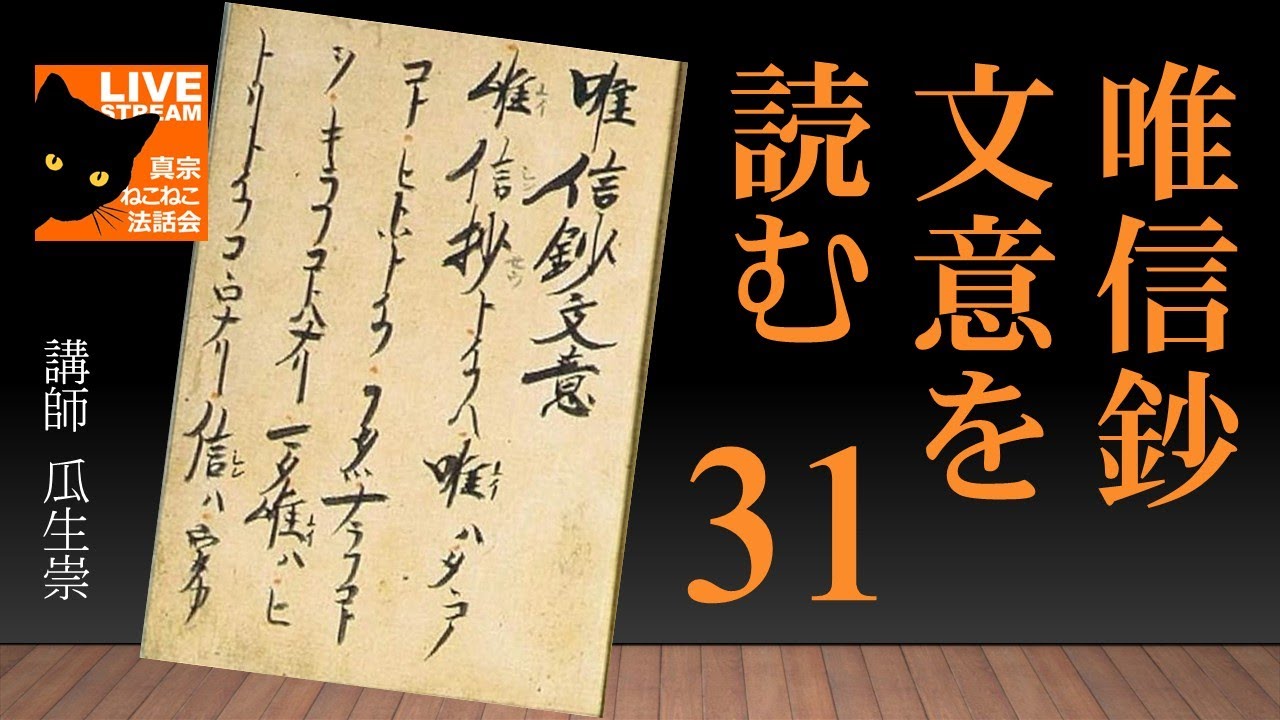 唯信鈔
文意を
読む
31
LIVE
STREAM
真宗
ねこねこ
法話会
講師 瓜生崇
唯信鈔文意
唯信抄トイフハ唯ハタヽコノ
コトヒトツトイフフタツナラフコト
ヲキラフコトハナリマタ唯ハヒ
トリトイフコヽロナリ信ハウタカ